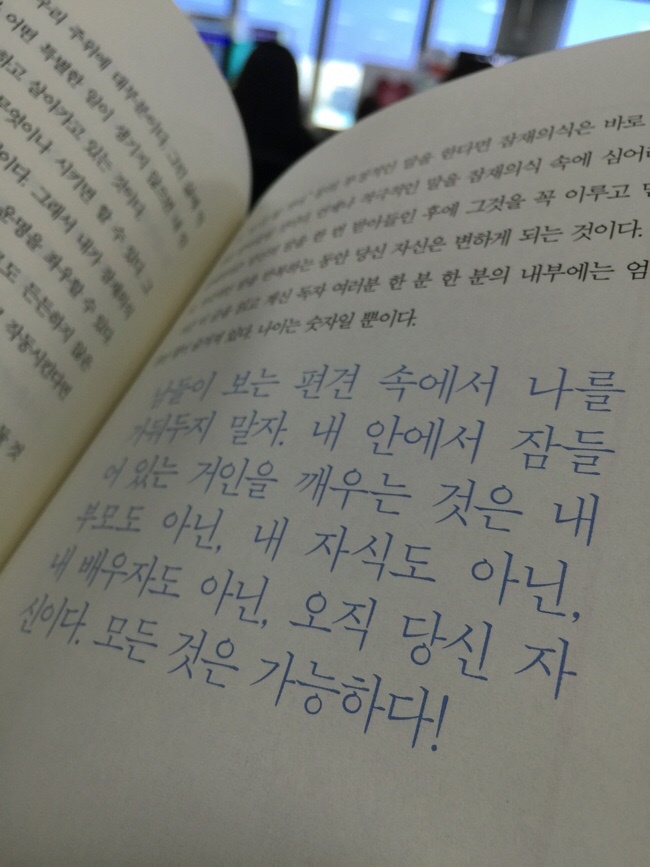 우리 주위에 대부분이다.
어떤 특별한 일이 생기지 않으면
하고 살아가고 있는 것이다.
무엇이나 시키면 할 수 있다. 그
이다. 그래서 내가
운명을 좌우할 수 있다.
도 든든하지 않은
작동시킨다면
것
부정적인 말을 한다면 잠재의식은 바로
언제나 적극적인 말을 잠재의식 속에
말을 한 번 받아들인 후에 그것을 꼭 이루고
말을 반복하는 동안 당신 자신은 변하게 되는 것이다.
이 글을 읽고 계신 독자 여러분 한 분 한 분의 내부에는
있다. 나이는 숫자일 뿐이다.
남들이 보는 편견 속에서 나를
가둬두지 말자. 내 안에서 잠들
어 있는 거인을 깨우는 것은 내
부모도 아닌, 내 자식도 아닌,
내 배우자도 아닌, 오직 당신 자
신이다. 모든 것은 가능하다!